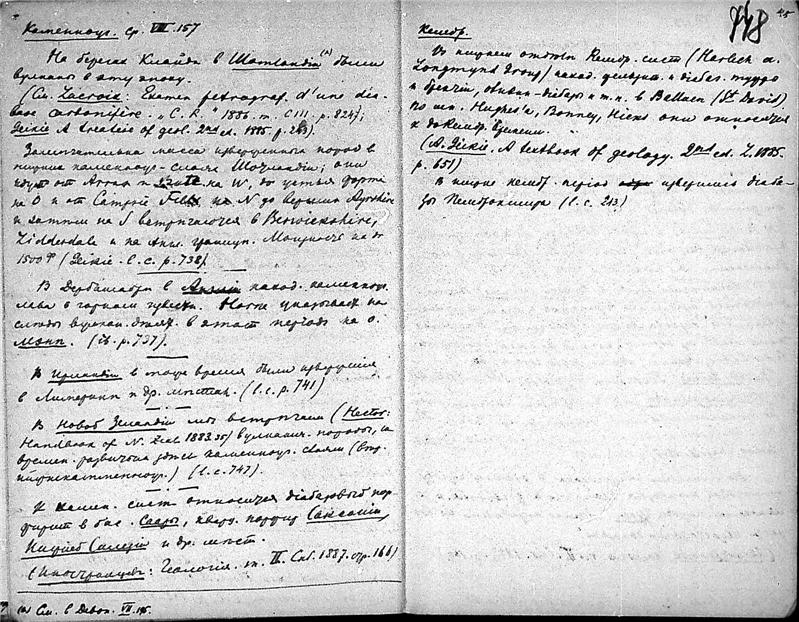 Каменноуг. Ср. VIII. 157
На берегах Клайда в Шотландіи (*) были
вулканы в эту эпоху.
(См. Lacroix: Examen petrograf. d'une dia-
base carbonifère. „C. R." 1886. т. CIII. p. 824);
Geikie A treatise of geol. 2nd ed. 1885. p. 213).
Замечательна масса изверженных пород в
нижних каменноуг. слоях Шотландіи; они
идут от Arran и Bute на W, до устья Форта
на O и от Campsie Fells на N до вершин Ayrshire
и затем на S встречаются в Berwickshire,
Lidderdale и на Англ. границе. Мощность их до
1500ф (Geikie. l. c. p. 738).
В Дербишайре в Англіи наход. каменноуг.
лава в горном известн. Horne указывает на
следы вулкан. деят. в этот періодъ на о.
Мэнн. (ib. p. 737).
В Ирландіи в тоже время были изверженія
в Лимерикъ и др. мѣстах. (l. c. p. 741)
В Новой Зеландіи мы встрѣчаем (Hector:
Handbook of N. Zeal. 1883. 35) вулканич. породы,
времен. развитія каменноуг. (l. c. 747).
К камен. сист. относится діабазовый пор-
фирит в бас. Саары, кварц. порфир Саксоніи,
Нижней Силезіи и др. мѣст.
(Иностранцев: Геологія. т. II. Спб. 1887. стр. 166)
(*) См. в Девон. VII.
748
45
Кембр.
В нижнем отдѣлѣ Кембр. сист. (Harlech a.
Longmynd Group) наход. и діабаз. туфы
и брекчіи, діабазы и т. п. в (St. David)
По мн. Hughes'а, Bonney, Hicks они относятся
к доКембр. времени.
(A. Geikie. A textbook of geology. 2nd ed. L. 1885.
p. 651)
В нижне кемб. період изверглись діаба-
зы Пемброкшира (l. c. 213)